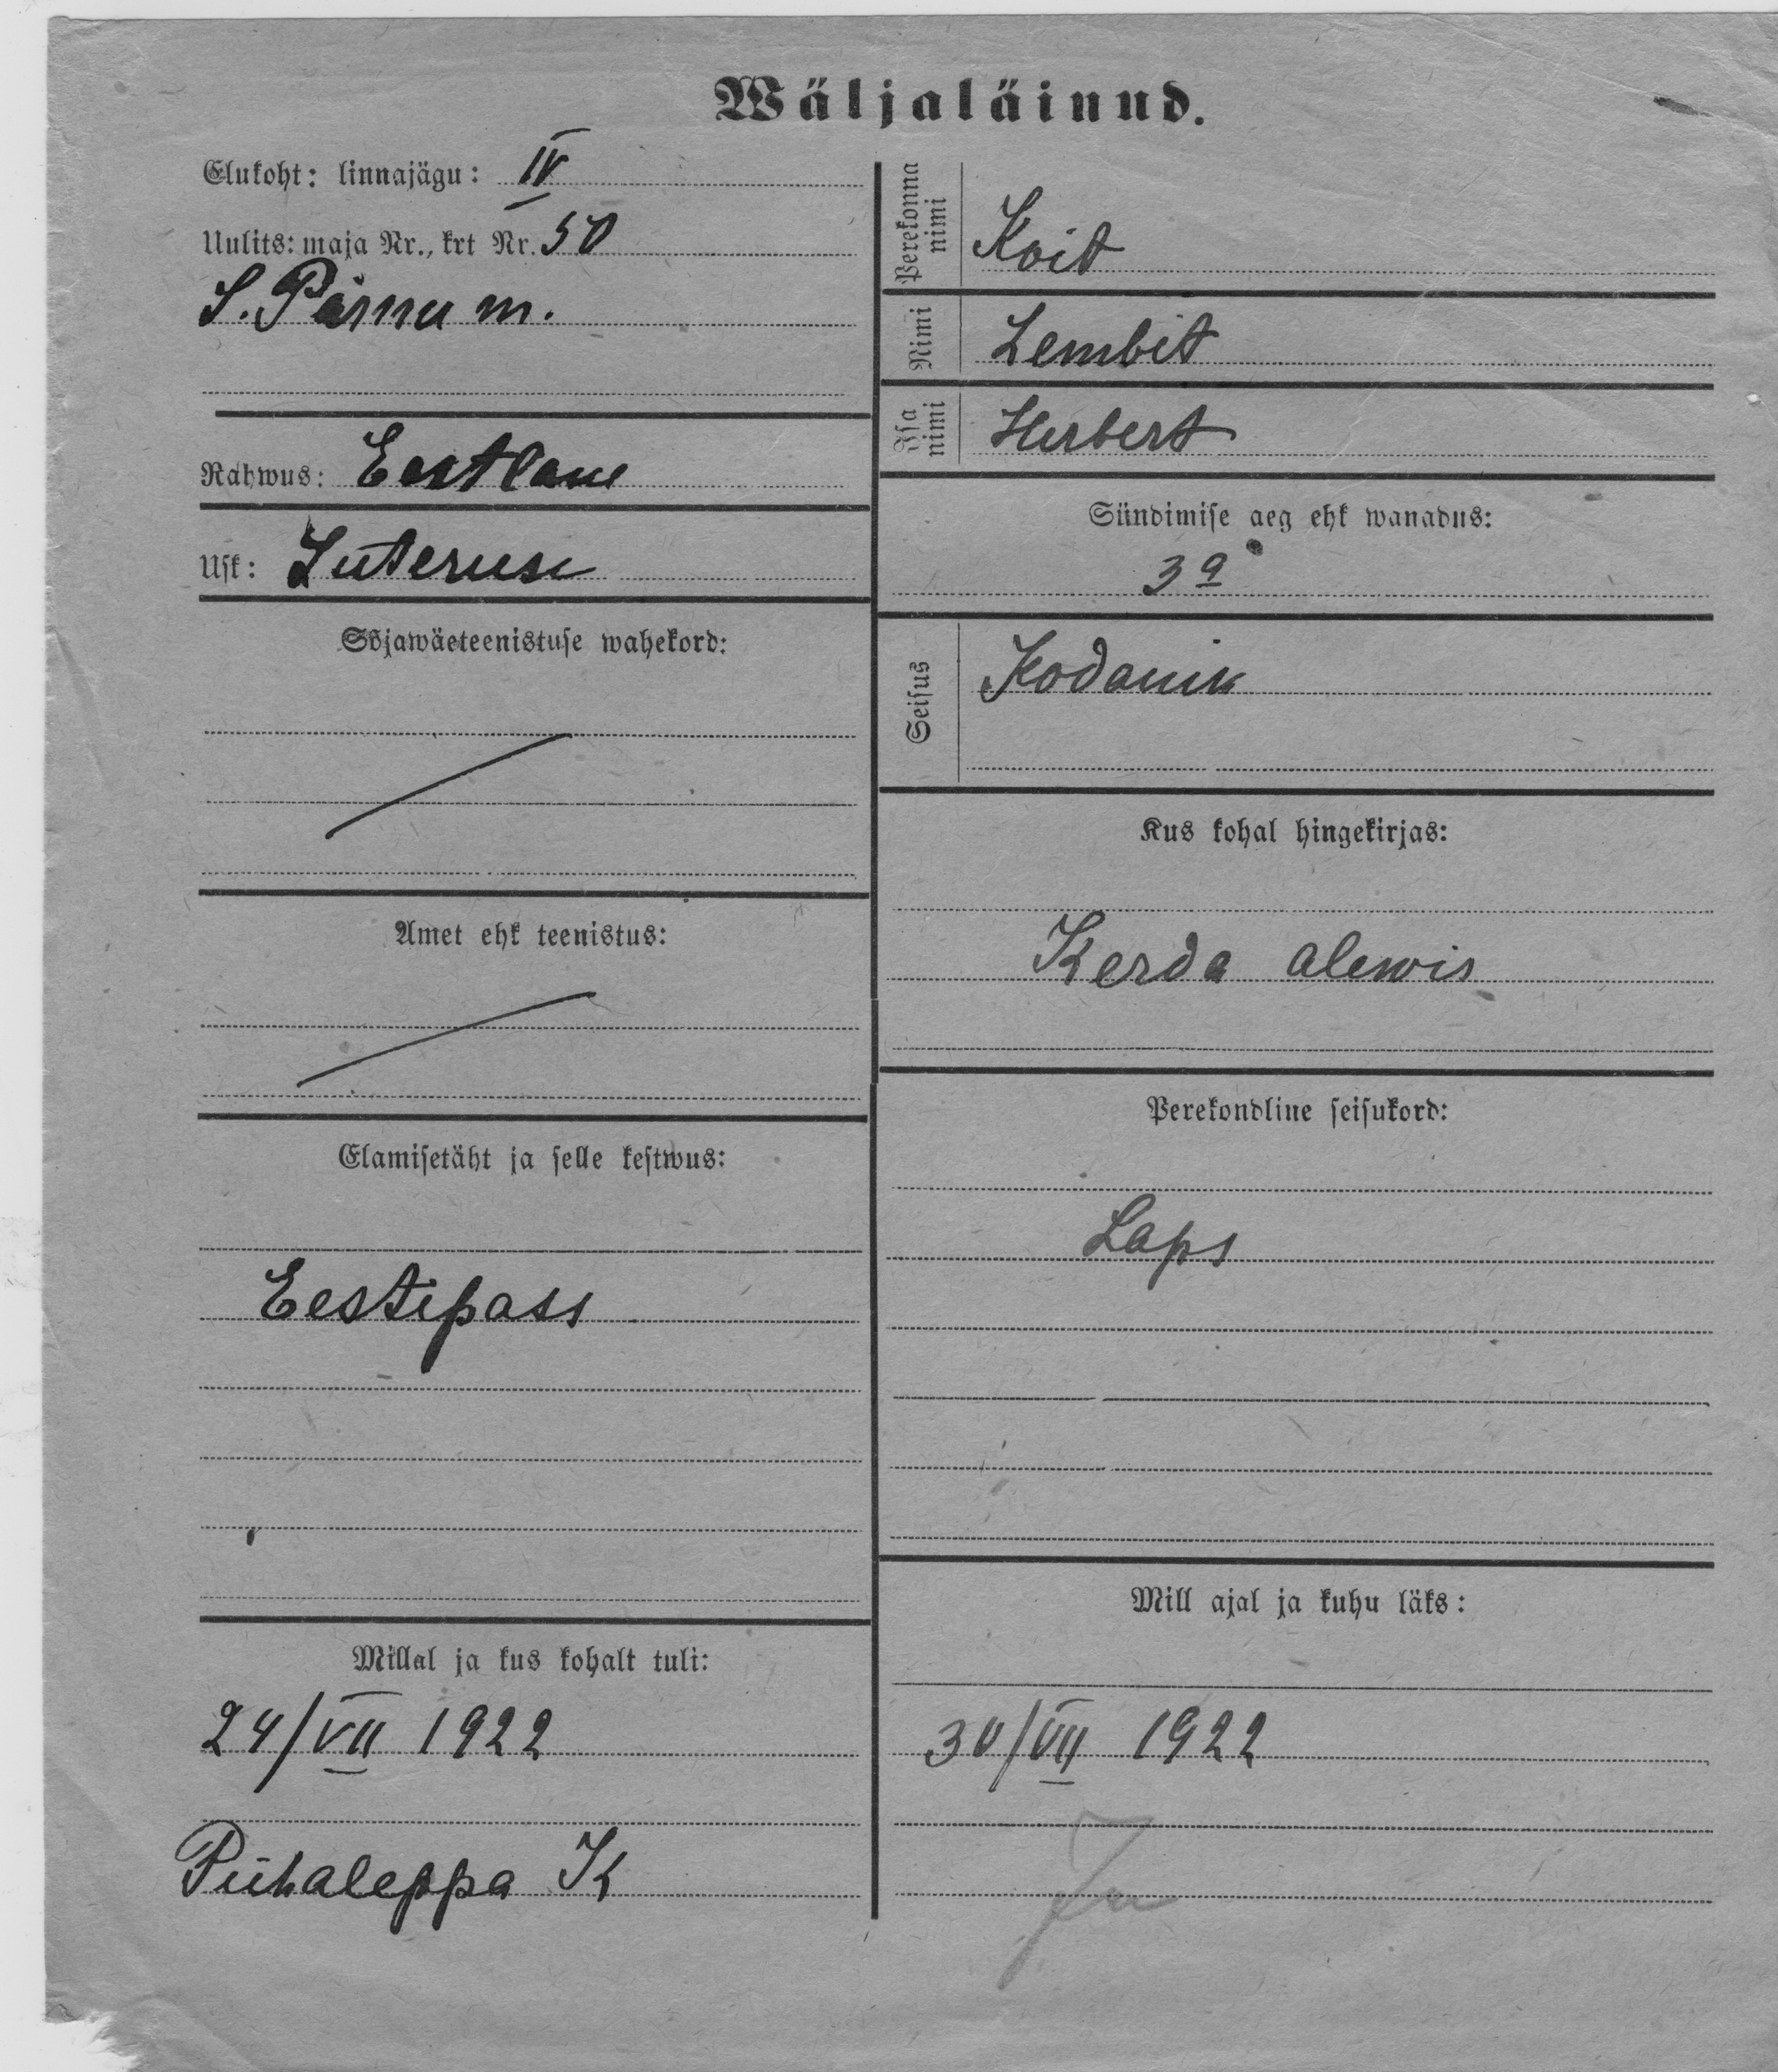 Wäljaläinud.
Elukoht: linnajägu: IV
Uulits: maja Nr., krt Nr. 50
S. Pärnu m.
Rahwus: Eestlane
Usk: Luteruse
Sõjawäeteenistuse wahekord:
Amet ehk teenistus:
Elamisetäht ja selle kestwus:
Eestipass
Millal ja kus kohalt tuli:
24/VII 1922
Pühaleppa K
Perekonna nimi Koit
Nimi Lembit
Isa nimi Herbert
Sündimise aeg ehk wanadus:
3 a
Seisus Kodanik
Kus kohal hingekirjas:
Kerda alewis
Perekondline seisukord:
Laps
Mill ajal ja kuhu läks:
30/VII 1922